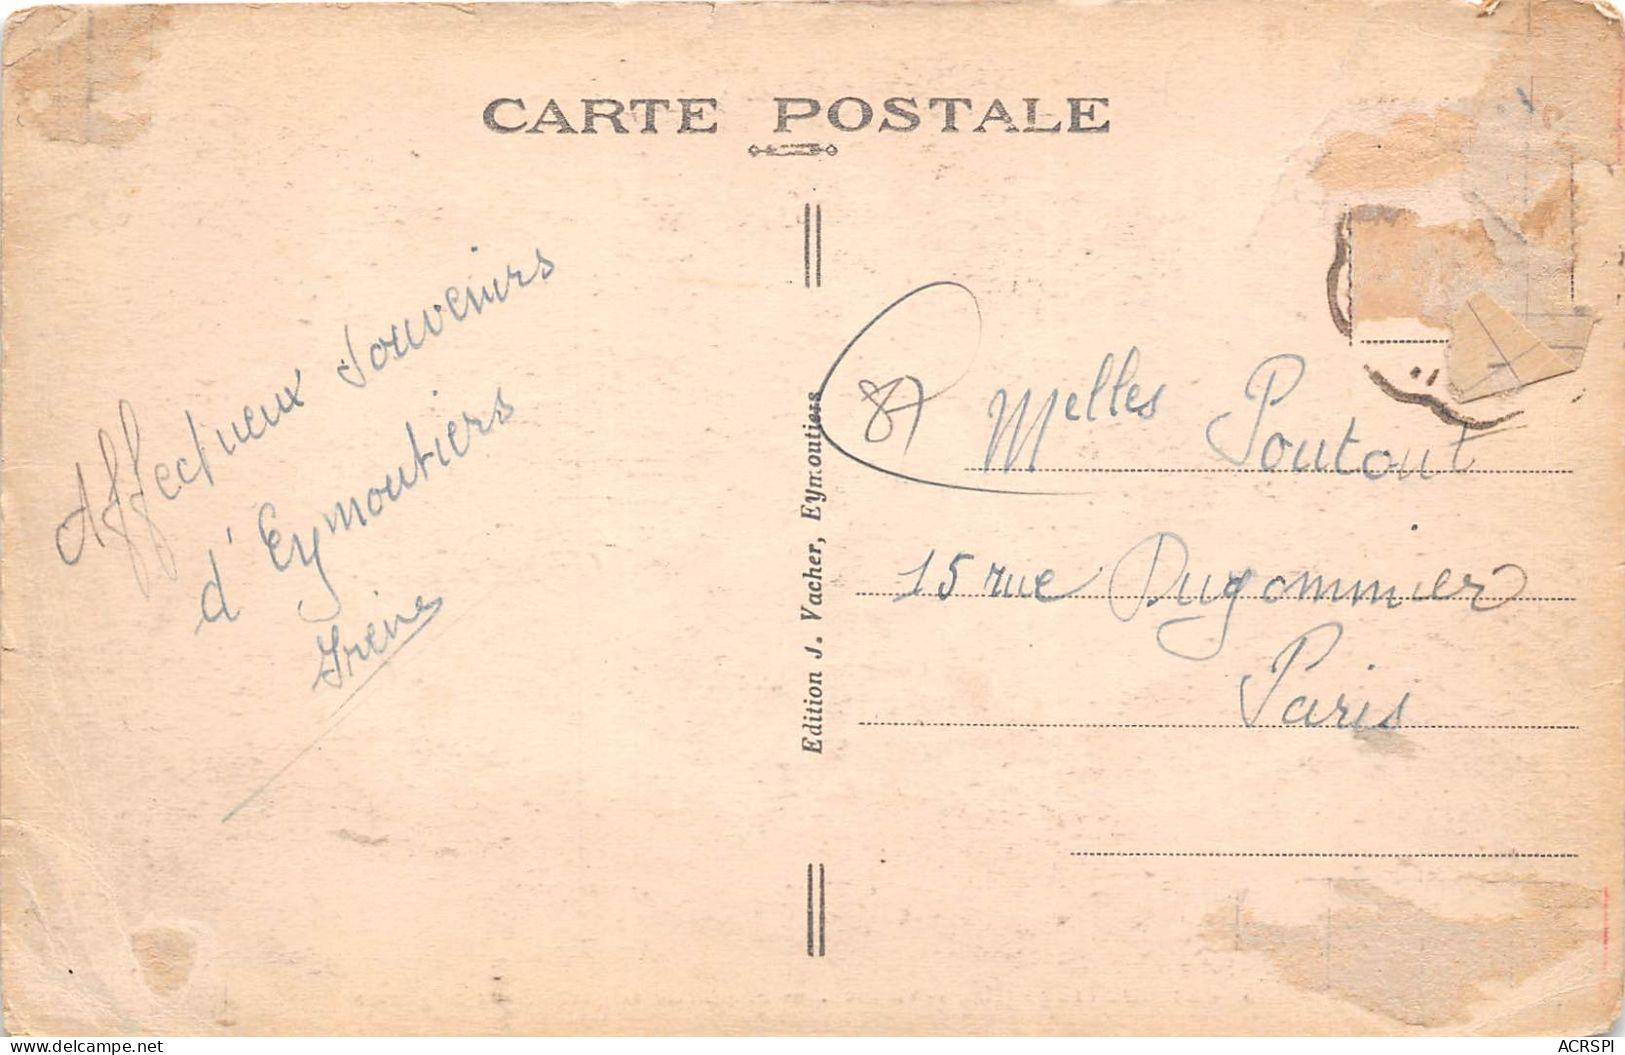 CARTE POSTALE
Affectueux souvenirs
d'Eymoutiers
Irène
Edition J. Vacher, Eymoutiers
87
Melles Poutout
15 rue Dugommier
Paris
© delcampe.net
ACRSPI